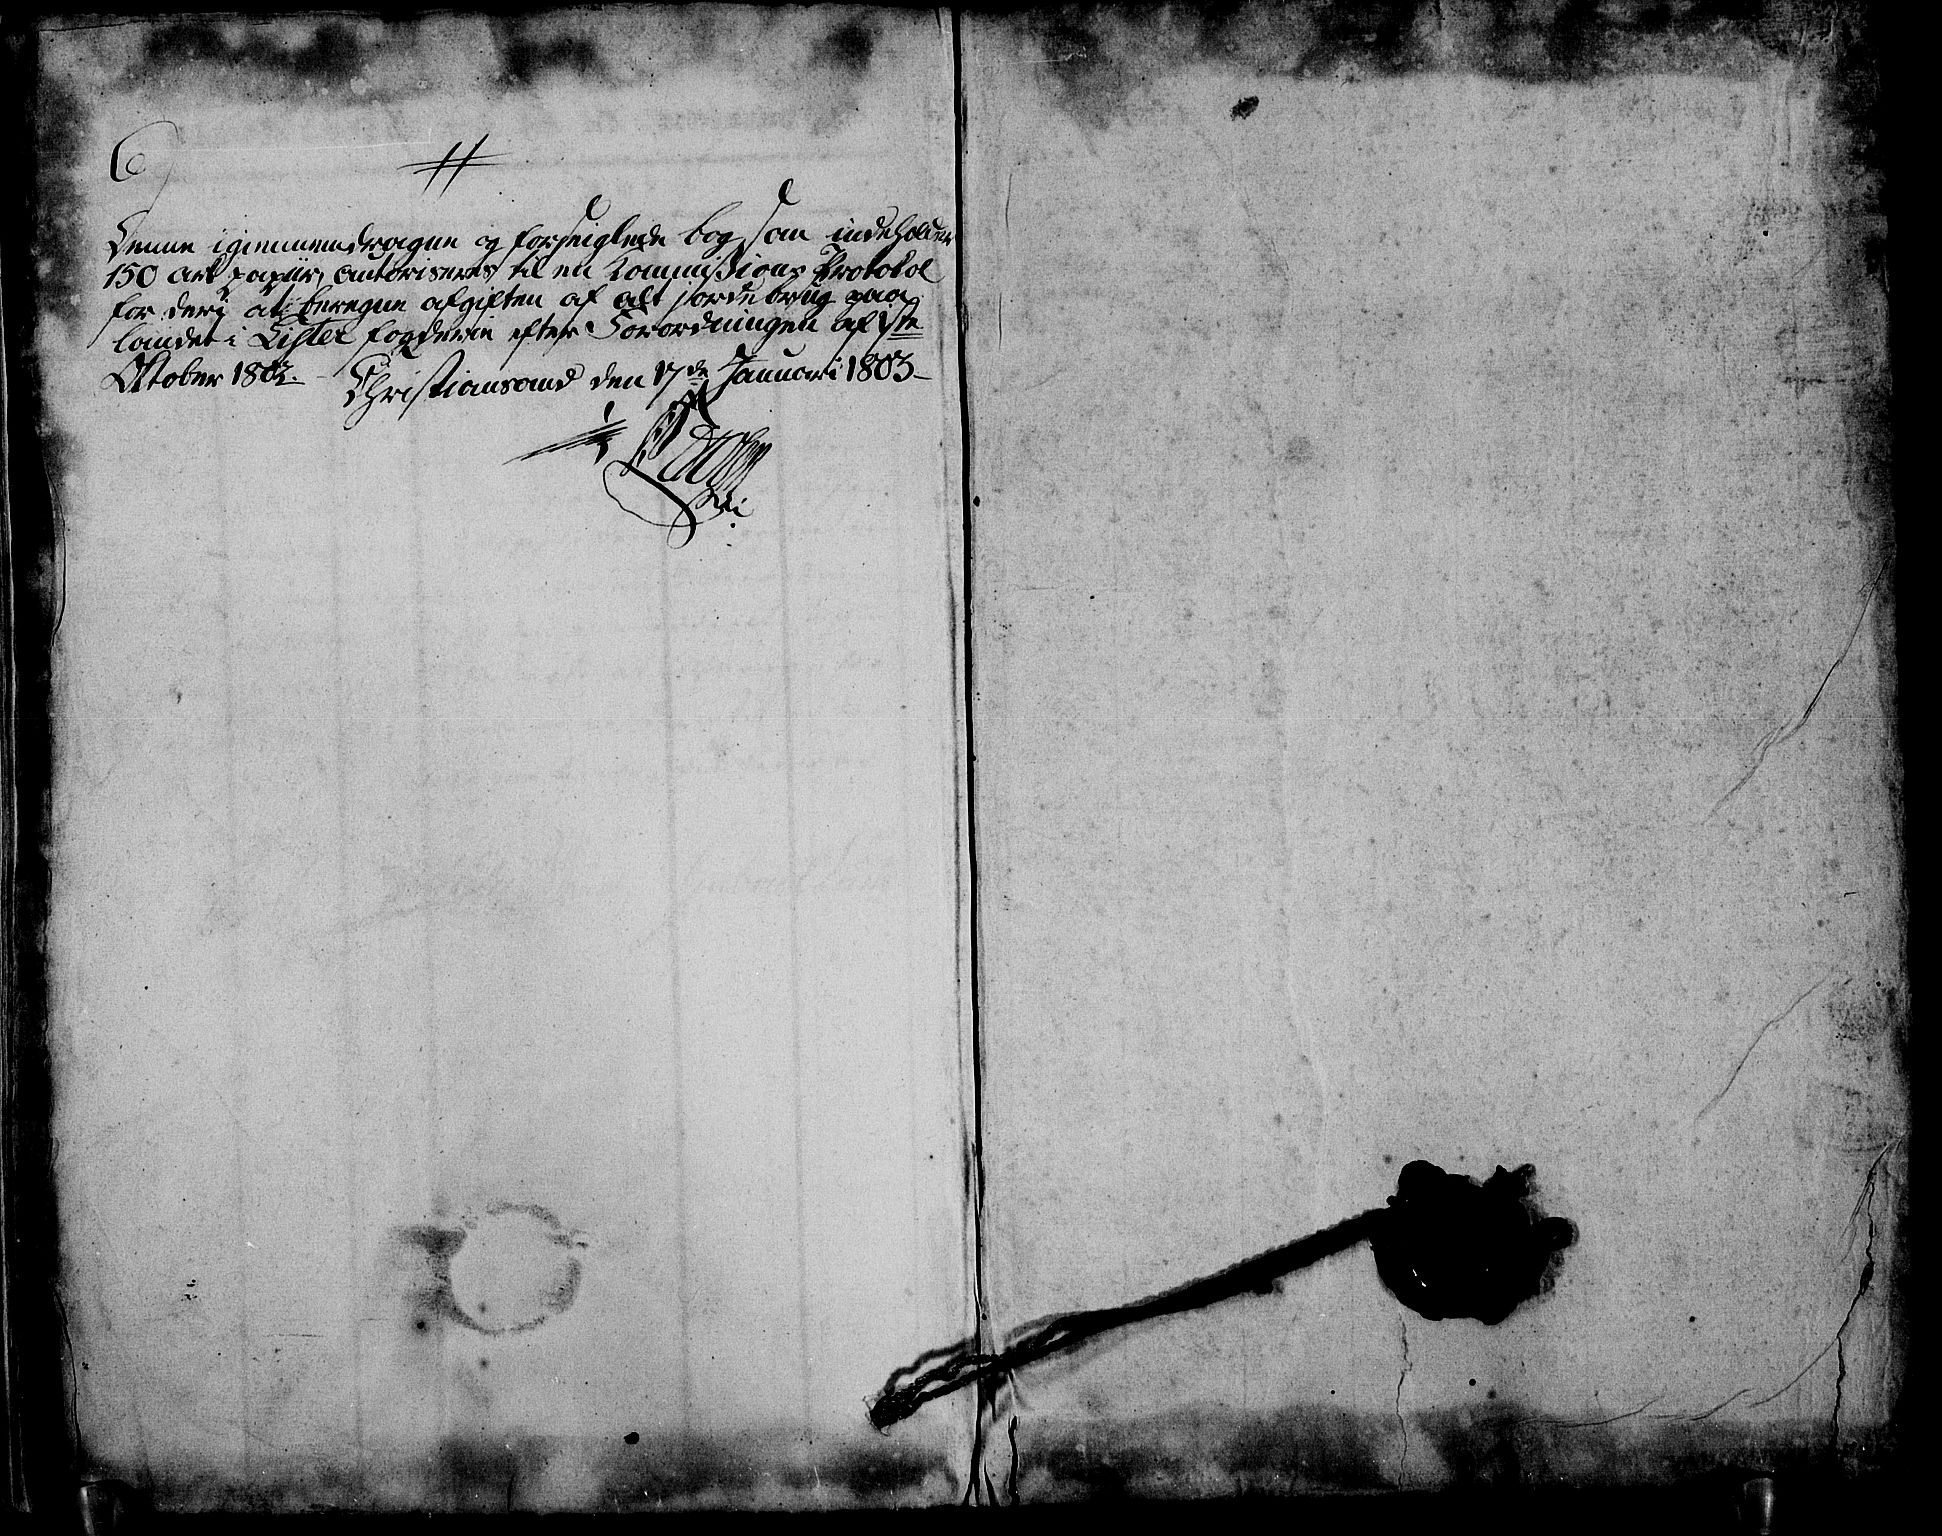 Denne igiennemdragne og forseiglede bog, som indeholder
150 ark papiir, autoriseres til en Kommissions Protokol
for deri at beregne afgiften af alt jordebrug paa
landet i Lister fogderie efter Forordningen af 1ste
Oktober 1802. Christiansand den 17de Januari 1803